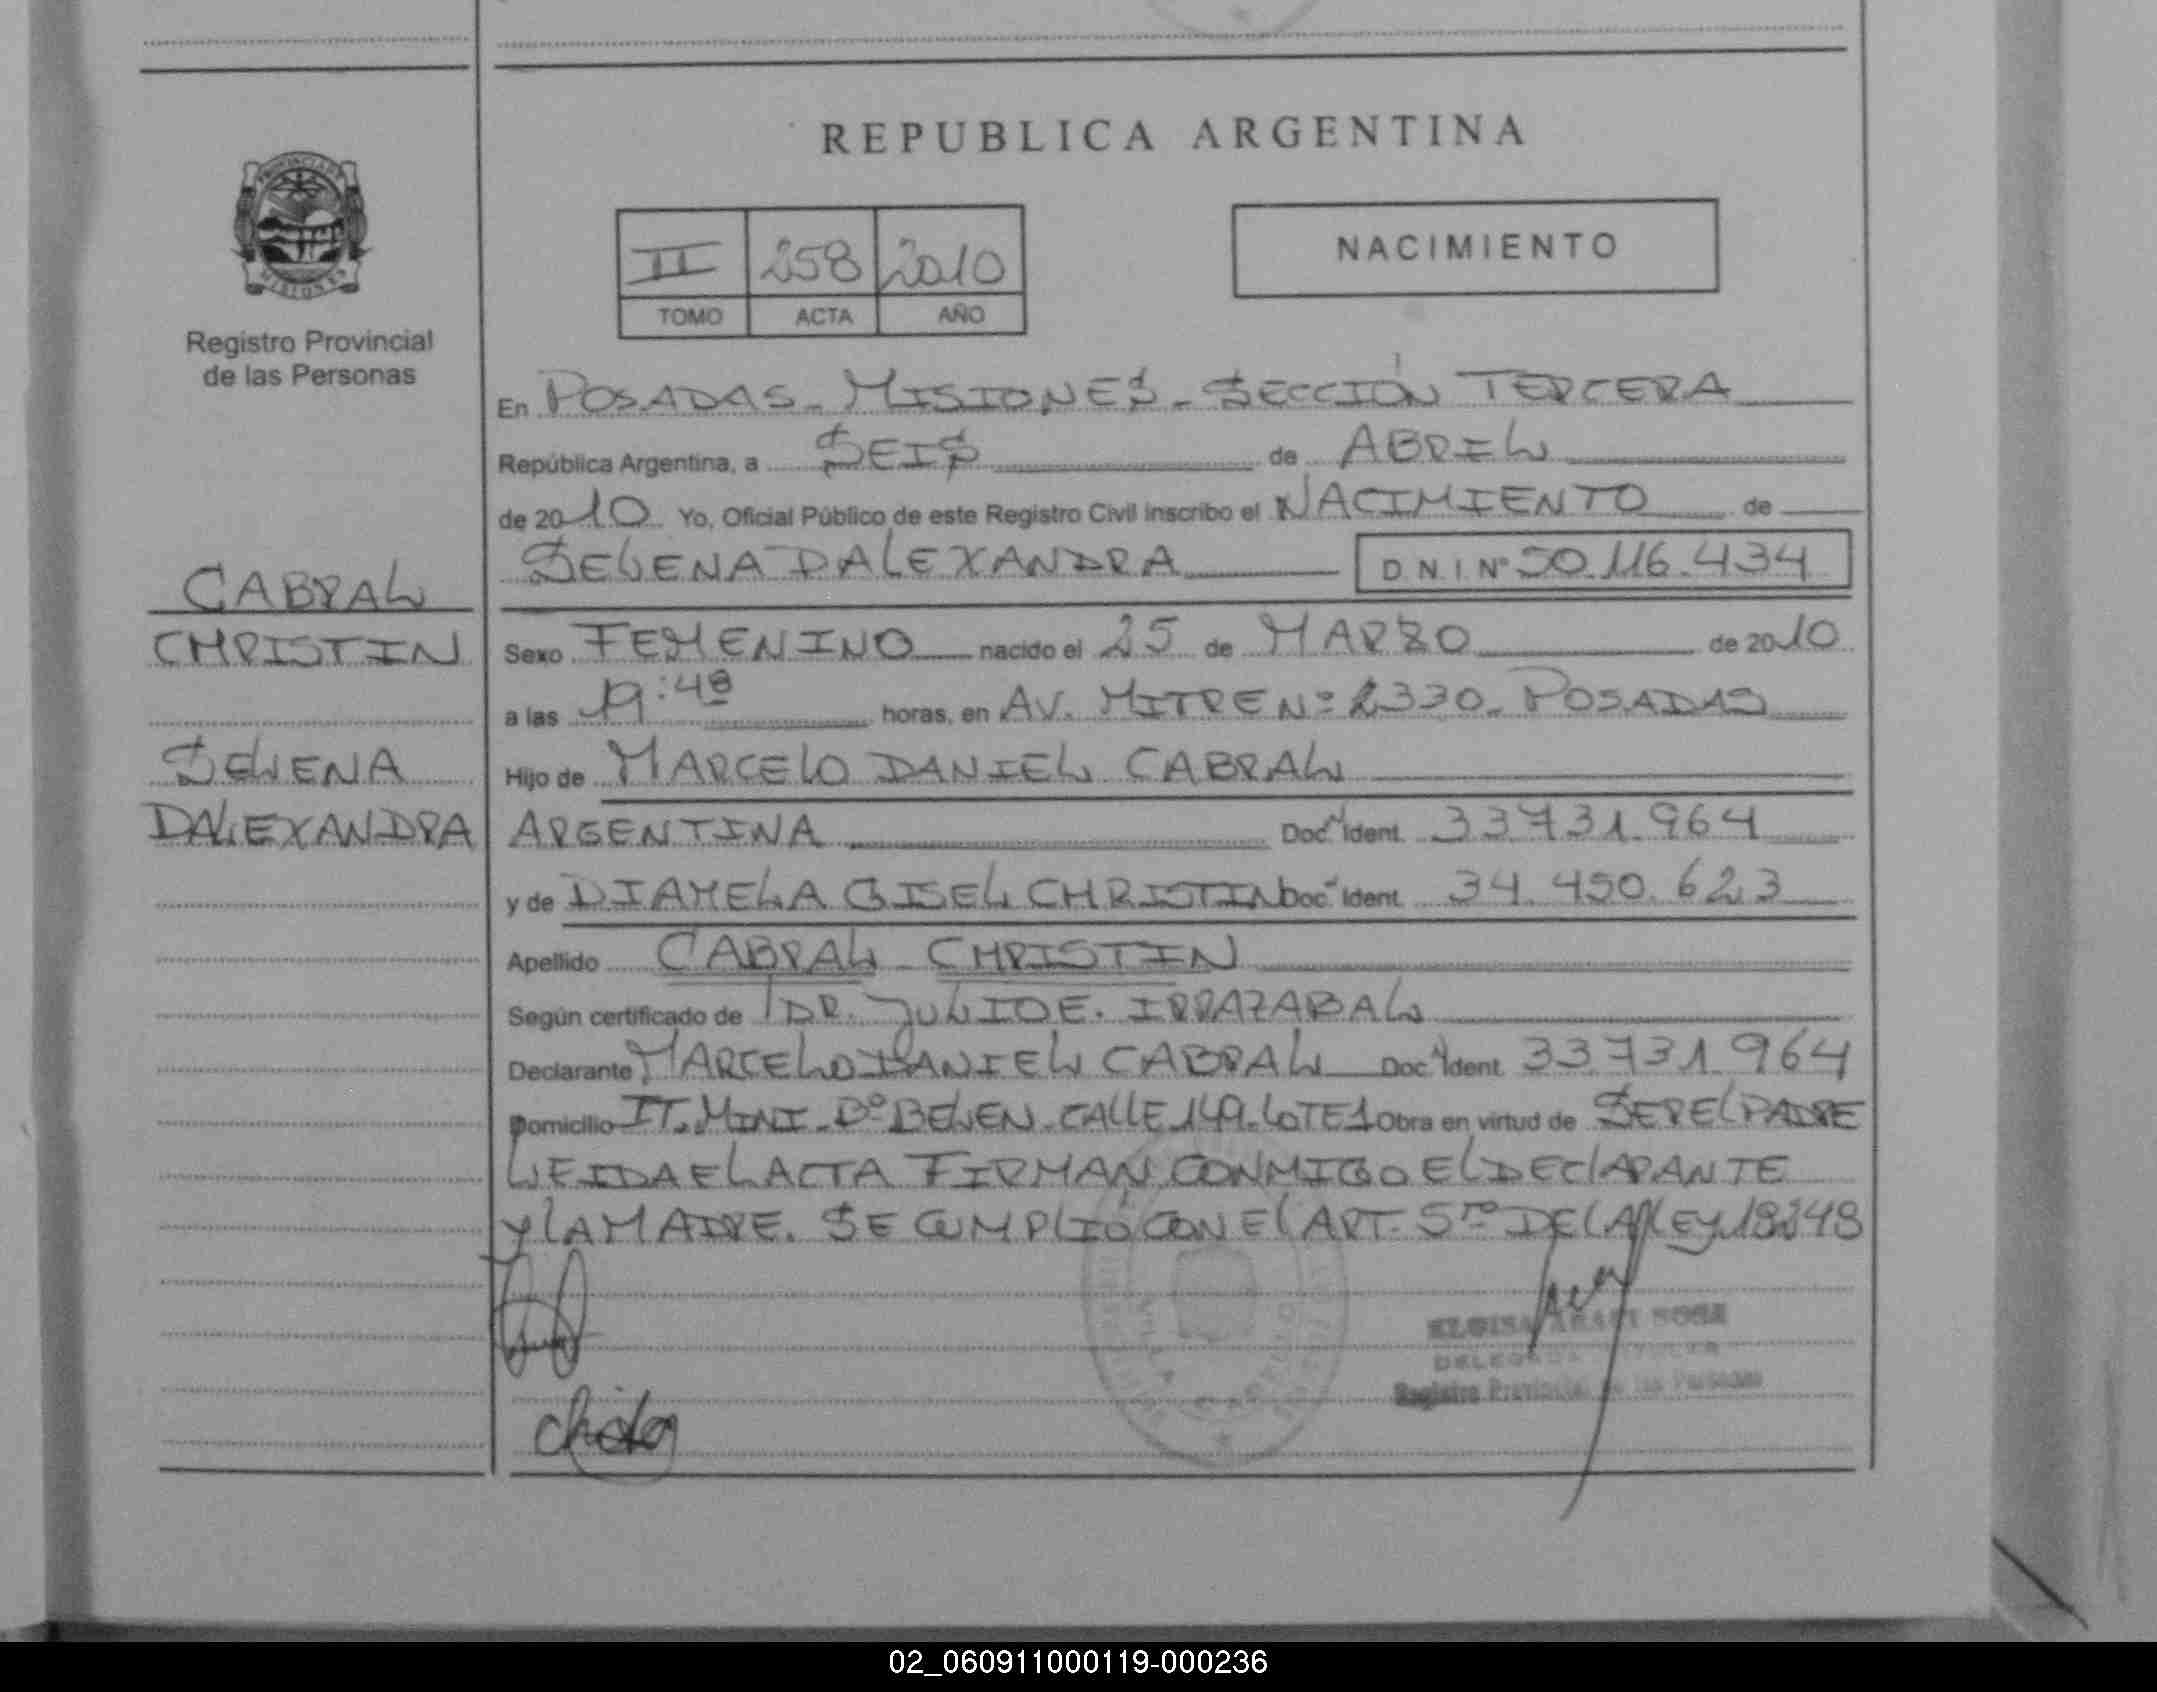 REPUBLICA ARGENTINA
II 258 2010
TOMO ACTA AÑO
NACIMIENTO
Registro Provincial
de las Personas
En POSADAS - MISIONES - SECCIÓN TERCERA
República Argentina, a SEIS de ABRIL
de 2010 Yo, Oficial Público de este Registro Civil inscribo el NACIMIENTO de
SELENA DALEXANDRA D N I Nº 50.116.434
CABRAL
CHRISTIN
SELENA
DALEXANDRA
Sexo FEMENINO nacido el 25 de MARZO de 2010
a las 19:48 horas, en AV. MITRE Nº 2330 - POSADAS
Hijo de MARCELO DANIEL CABRAL
ARGENTINA Doc. Ident. 33.731.964
y de DIAMELA GISEL CHRISTIN Doc. Ident. 34.450.623
Apellido CABRAL CHRISTIN
Según certificado de DR. JULIO E. IRRAZABAL
Declarante MARCELO DANIEL CABRAL Doc. Ident. 33.731.964
Domicilio IT. MINI - Bº BELEN - CALLE 149 - LOTE 1 Obra en virtud de SER EL PADRE
LEIDA EL ACTA FIRMAN CONMIGO EL DECLARANTE
Y LA MADRE. SE CUMPLIO CON EL ART. 5TO DE LA LEY 18248
DELEGADA
Registro Provincial de las Personas
02_060911000119-000236